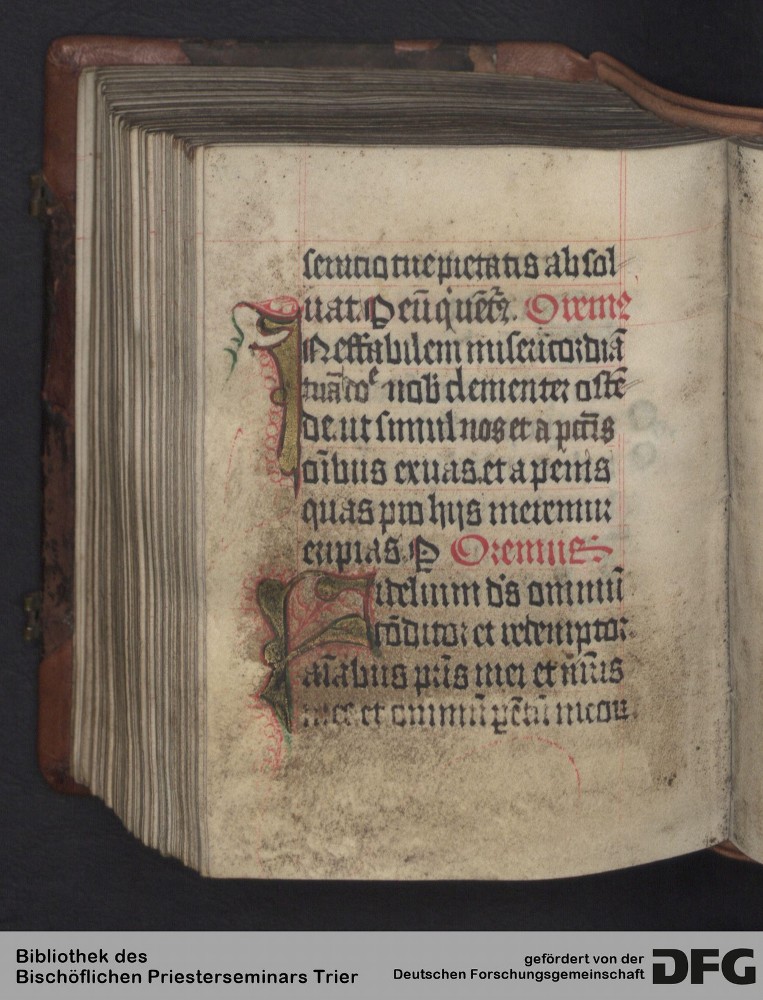 seracio tue pietatis absol
uat. P eū q̇ vētꝰ. Oremꝰ
INeffabilem misericordiā
tuā dn̄e nob̄ clementer ostē
de. ut simul nos et a pctīs
oībus exuas. et a penis
quas pro hijs meremur
eripias. P Oremus
Fidelium ds̄ omniū
cōditor et redemptor
aīabus pr̄is mei et mr̄is
mee. et omniū pētū meor
Bibliothek des
Bischöflichen Priesterseminars Trier
gefördert von der
Deutschen Forschungsgemeinschaft
DFG